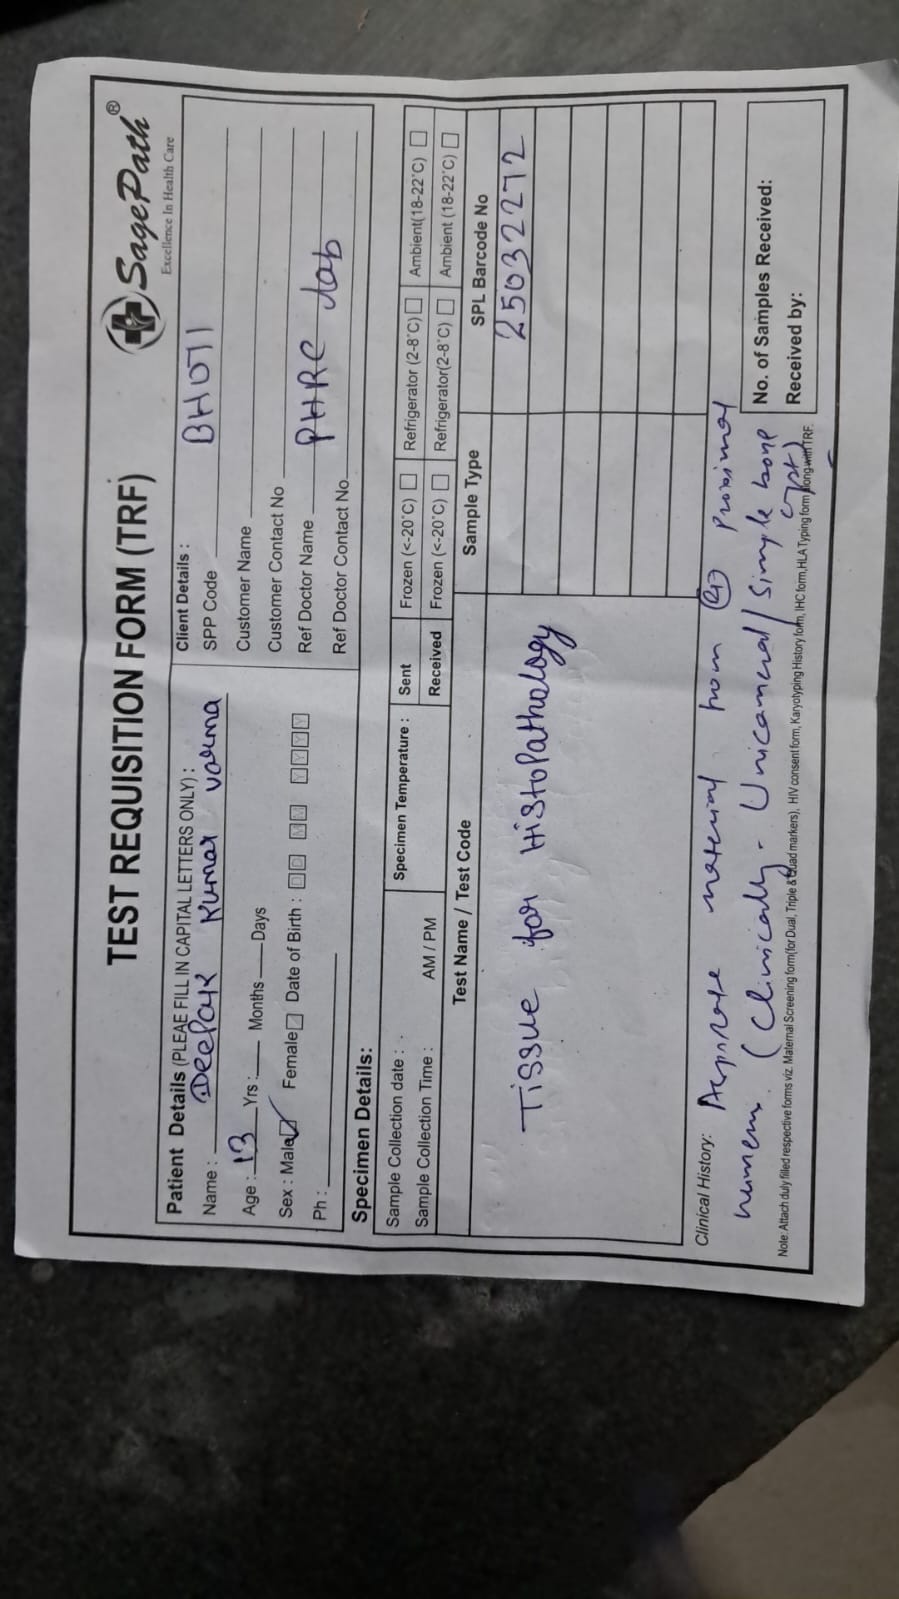 TEST REQUISITION FORM (TRF)
SagePath®
Excellence In Health Care
Patient Details (PLEAE FILL IN CAPITAL LETTERS ONLY) :
Name : Deepak Kumar varma
Age : 13 Yrs : Months Days
Sex : Male ☑ Female ☐ Date of Birth : D D M M Y Y Y Y
Ph :
Client Details :
SPP Code BH071
Customer Name
Customer Contact No
Ref Doctor Name PHRC Lab
Ref Doctor Contact No.
Specimen Details:
Sample Collection date :
Sample Collection Time : AM / PM
Specimen Temperature :
Sent Frozen (<-20°C) ☐ Refrigerator (2-8°C) ☐ Ambient(18-22°C) ☐
Received Frozen (<-20°C) ☐ Refrigerator(2-8°C) ☐ Ambient (18-22°C) ☐
Test Name / Test Code Sample Type SPL Barcode No
Tissue for Histopathology 25032272
Clinical History: Aspirate material from proximal
humerus. (Clinically - Unicameral / Simple bone
cyst)
Note: Attach duly filled respective forms viz. Maternal Screening form(for Dual, Triple & Quad markers), HIV consent form, Karyotyping History form, IHC form, HLA Typing form along with TRF.
No. of Samples Received:
Received by: